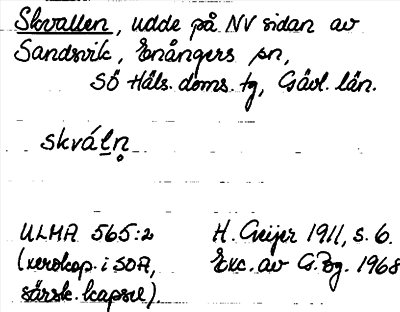 Skvallen, udde på NV sidan av
Sandsvik, Enångers sn,
SÖ Häls. doms. tg, Gävl. län.
skváln̥
ULMA 565:2 H. Geijer 1911, s. 6.
(xerokop. i SOA, Exc. av G.Bg. 1968
särsk. kapsel).